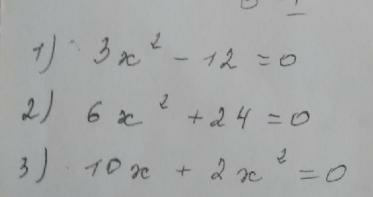 1) 3x² - 12 = 0
2) 6x² + 24 = 0
3) 10x + 2x² = 0